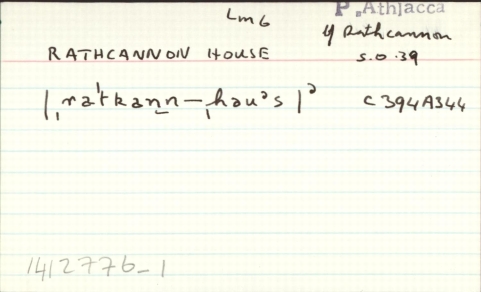 Lm6
P. Athlacca
y Rathcannon
RATHCANNON HOUSE
S.O.39
|ˌraˈtkann–ˌhauˀs|ˀ
C394A344
1412776_1